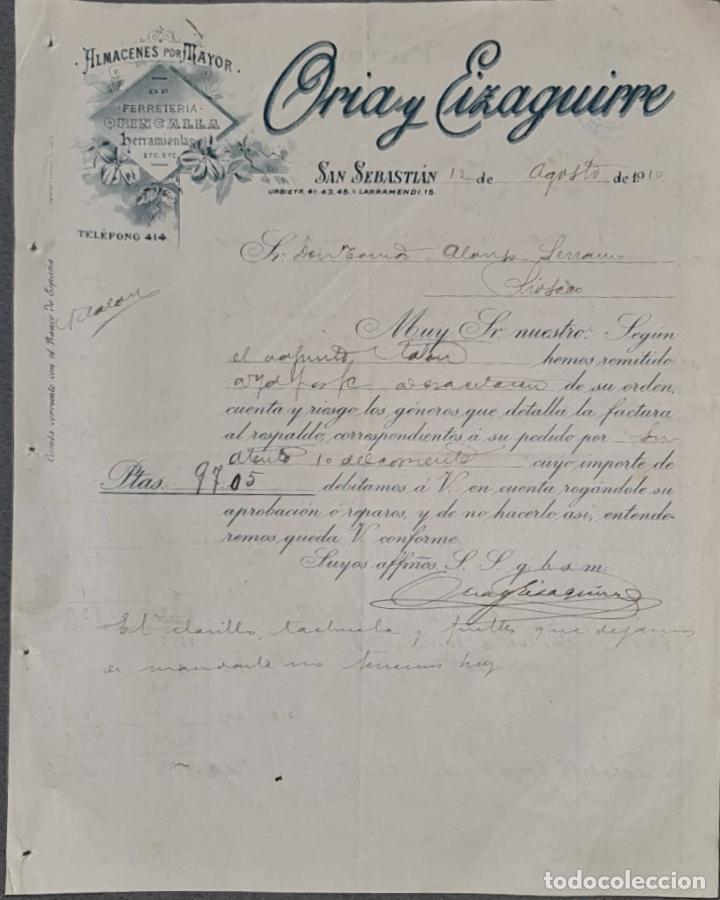 ALMACENES POR MAYOR
DE
FERRETERIA
QUINCALLA
herramientas
ETC. ETC.
TELÉFONO 414
Oria y Eizaguirre
SAN SEBASTIÁN 12 de Agosto de 1910
URBIETA, 41, 43, 45 Y LARRAMENDI, 15.
Cuenta corriente con el Banco de España
Sr. Don Tomás Alonso Serrano
Rioseco
Muy Sr. nuestro: Según
el adjunto talon hemos remitido
de su orden,
cuenta y riesgo los géneros que detalla la factura
al respaldo, correspondientes á su pedido por su
atento 10 del corriente cuyo importe de
Ptas. 97.05 debitamos á V. en cuenta rogándole su
aprobación ó reparos, y de no hacerlo así, entende-
remos queda V. conforme.
Suyos affmos. S. S. q. b. s. m.
Oria y Eizaguirre
El clavillo, tachuela y que dejamos
de mandarle no tenemos hoy
todocoleccion.net